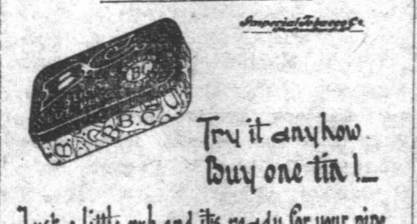 Imperial Tobacco Co
B.C.
Try it anyhow.
Buy one tin!
Just a little rub and its ready for your pipe